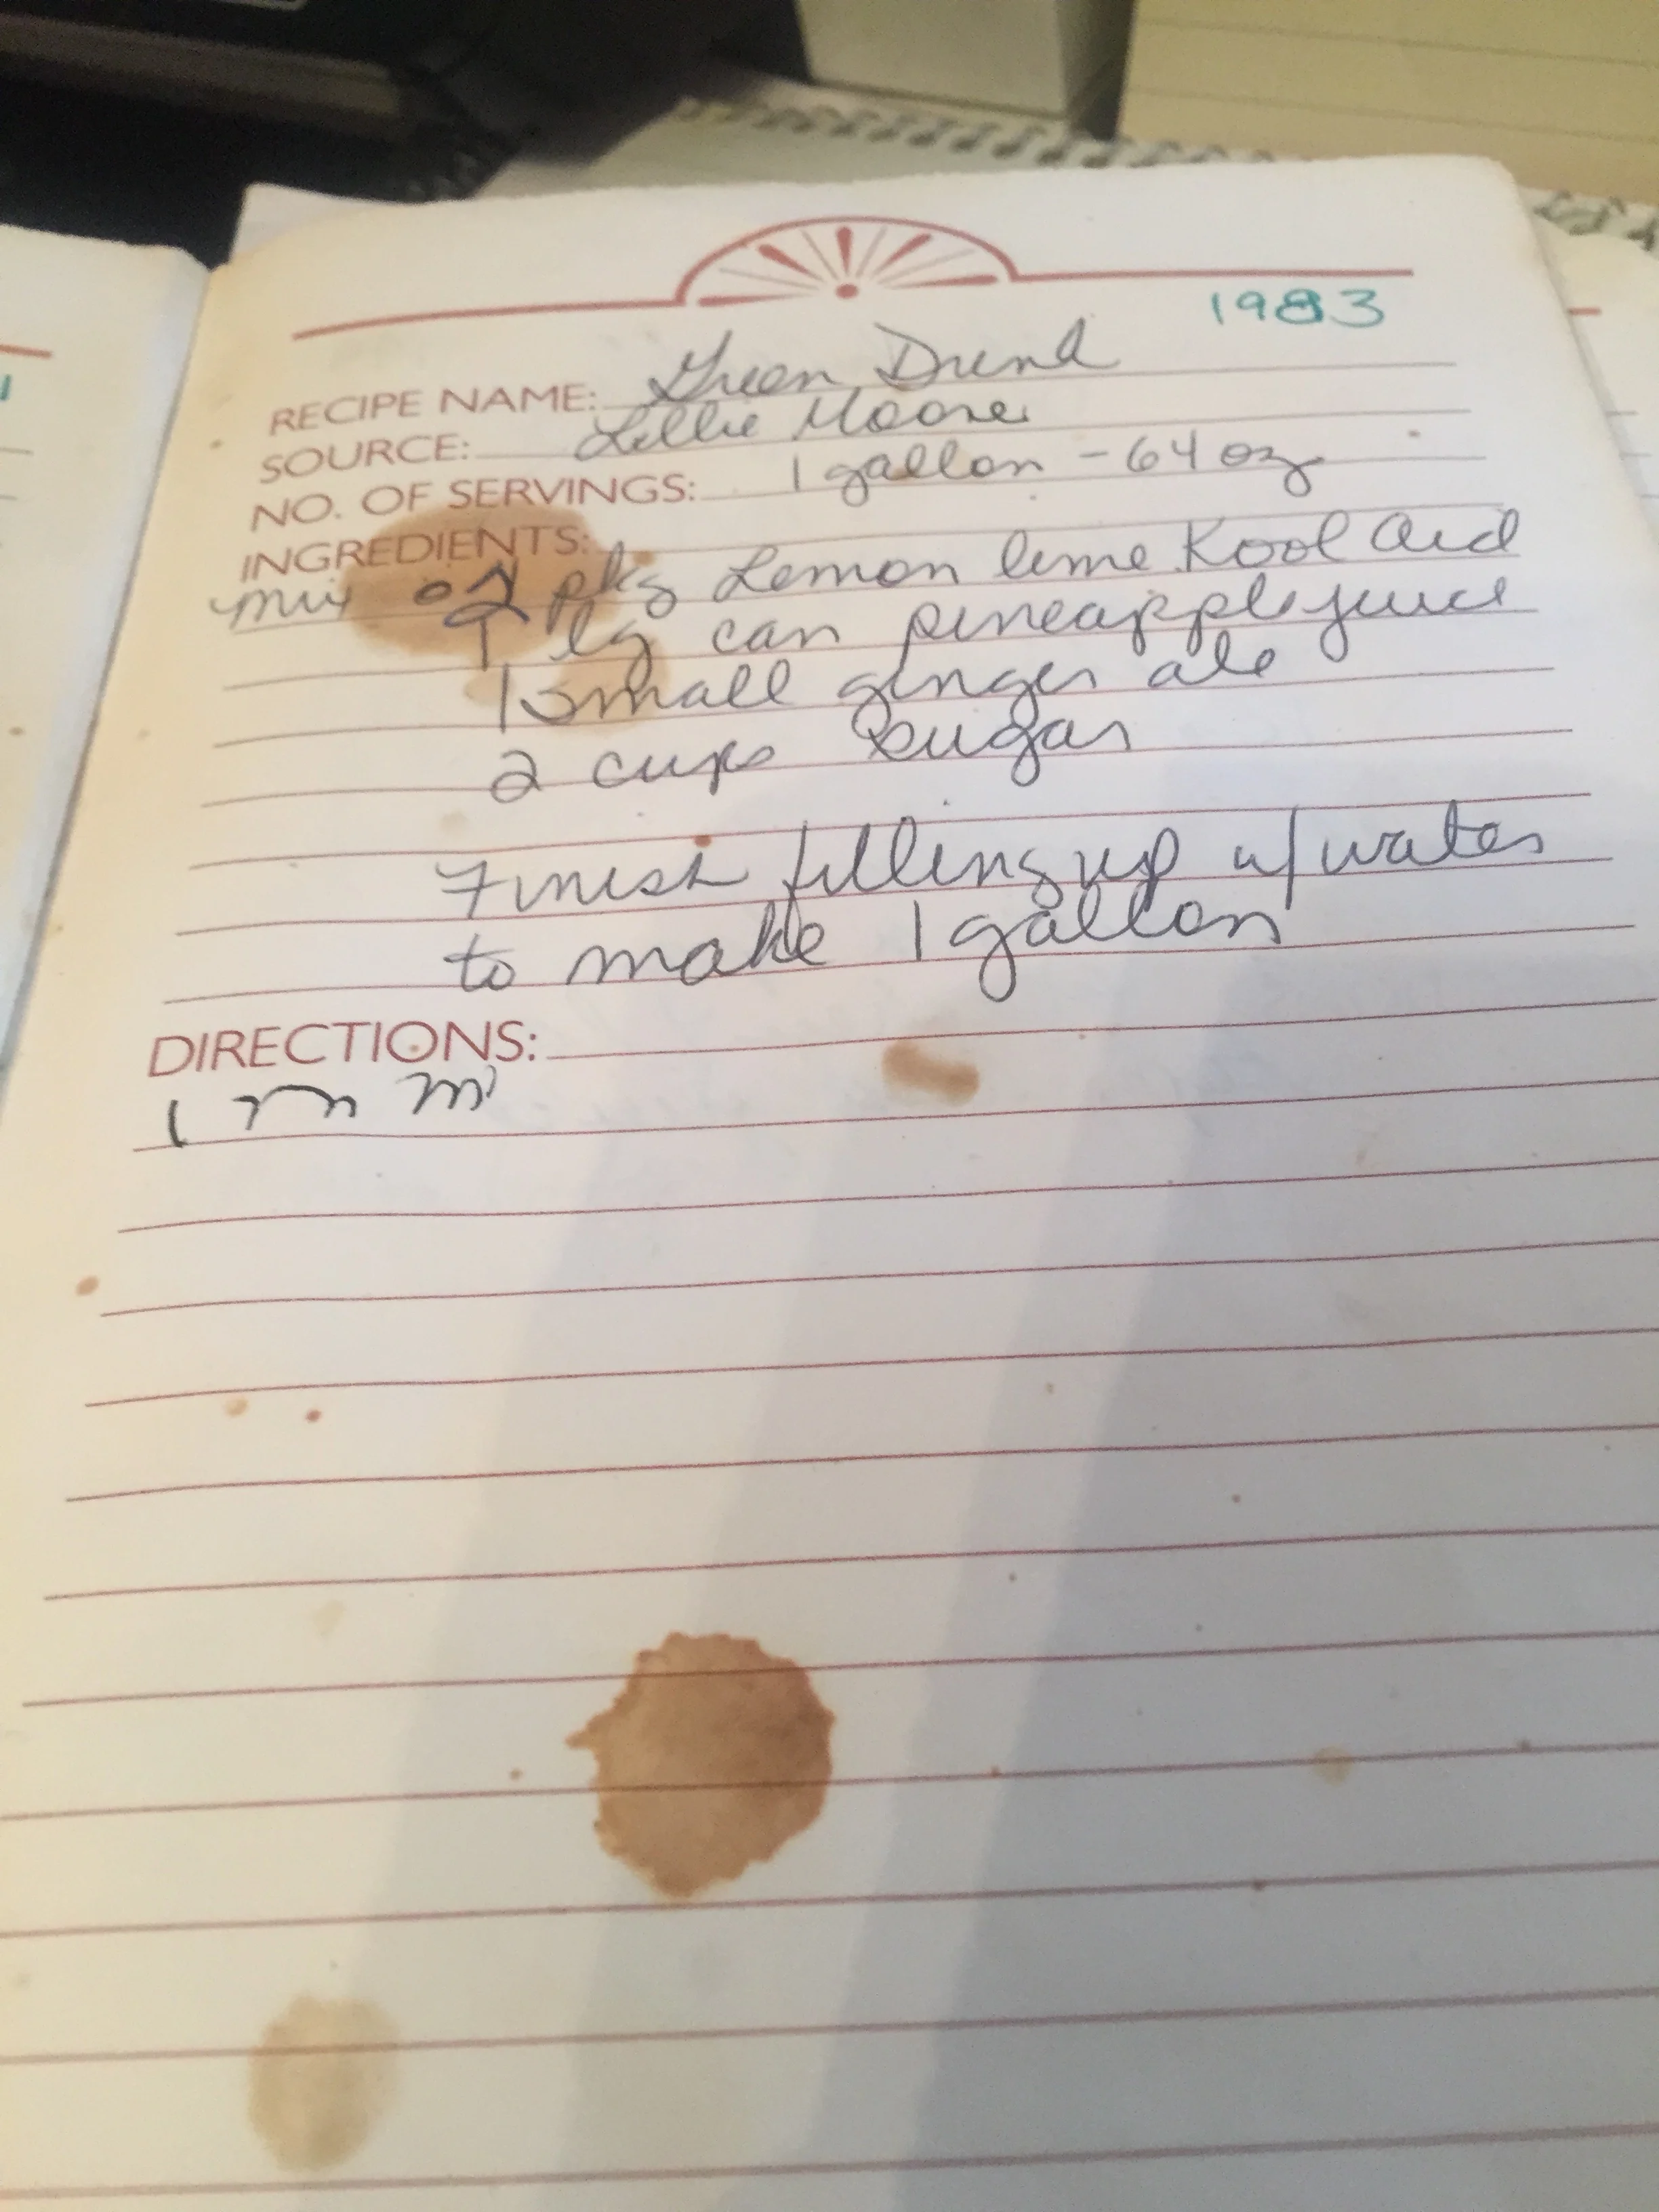 1983
RECIPE NAME: Green Drink
SOURCE: Lillie Moore
NO. OF SERVINGS: 1 gallon - 64 oz
INGREDIENTS:
mix 2 pkg Lemon lime Kool Aid
1 lg can pineapple juice
1 small ginger ale
2 cups sugar
Finish filling up w/ water
to make 1 gallon
DIRECTIONS: